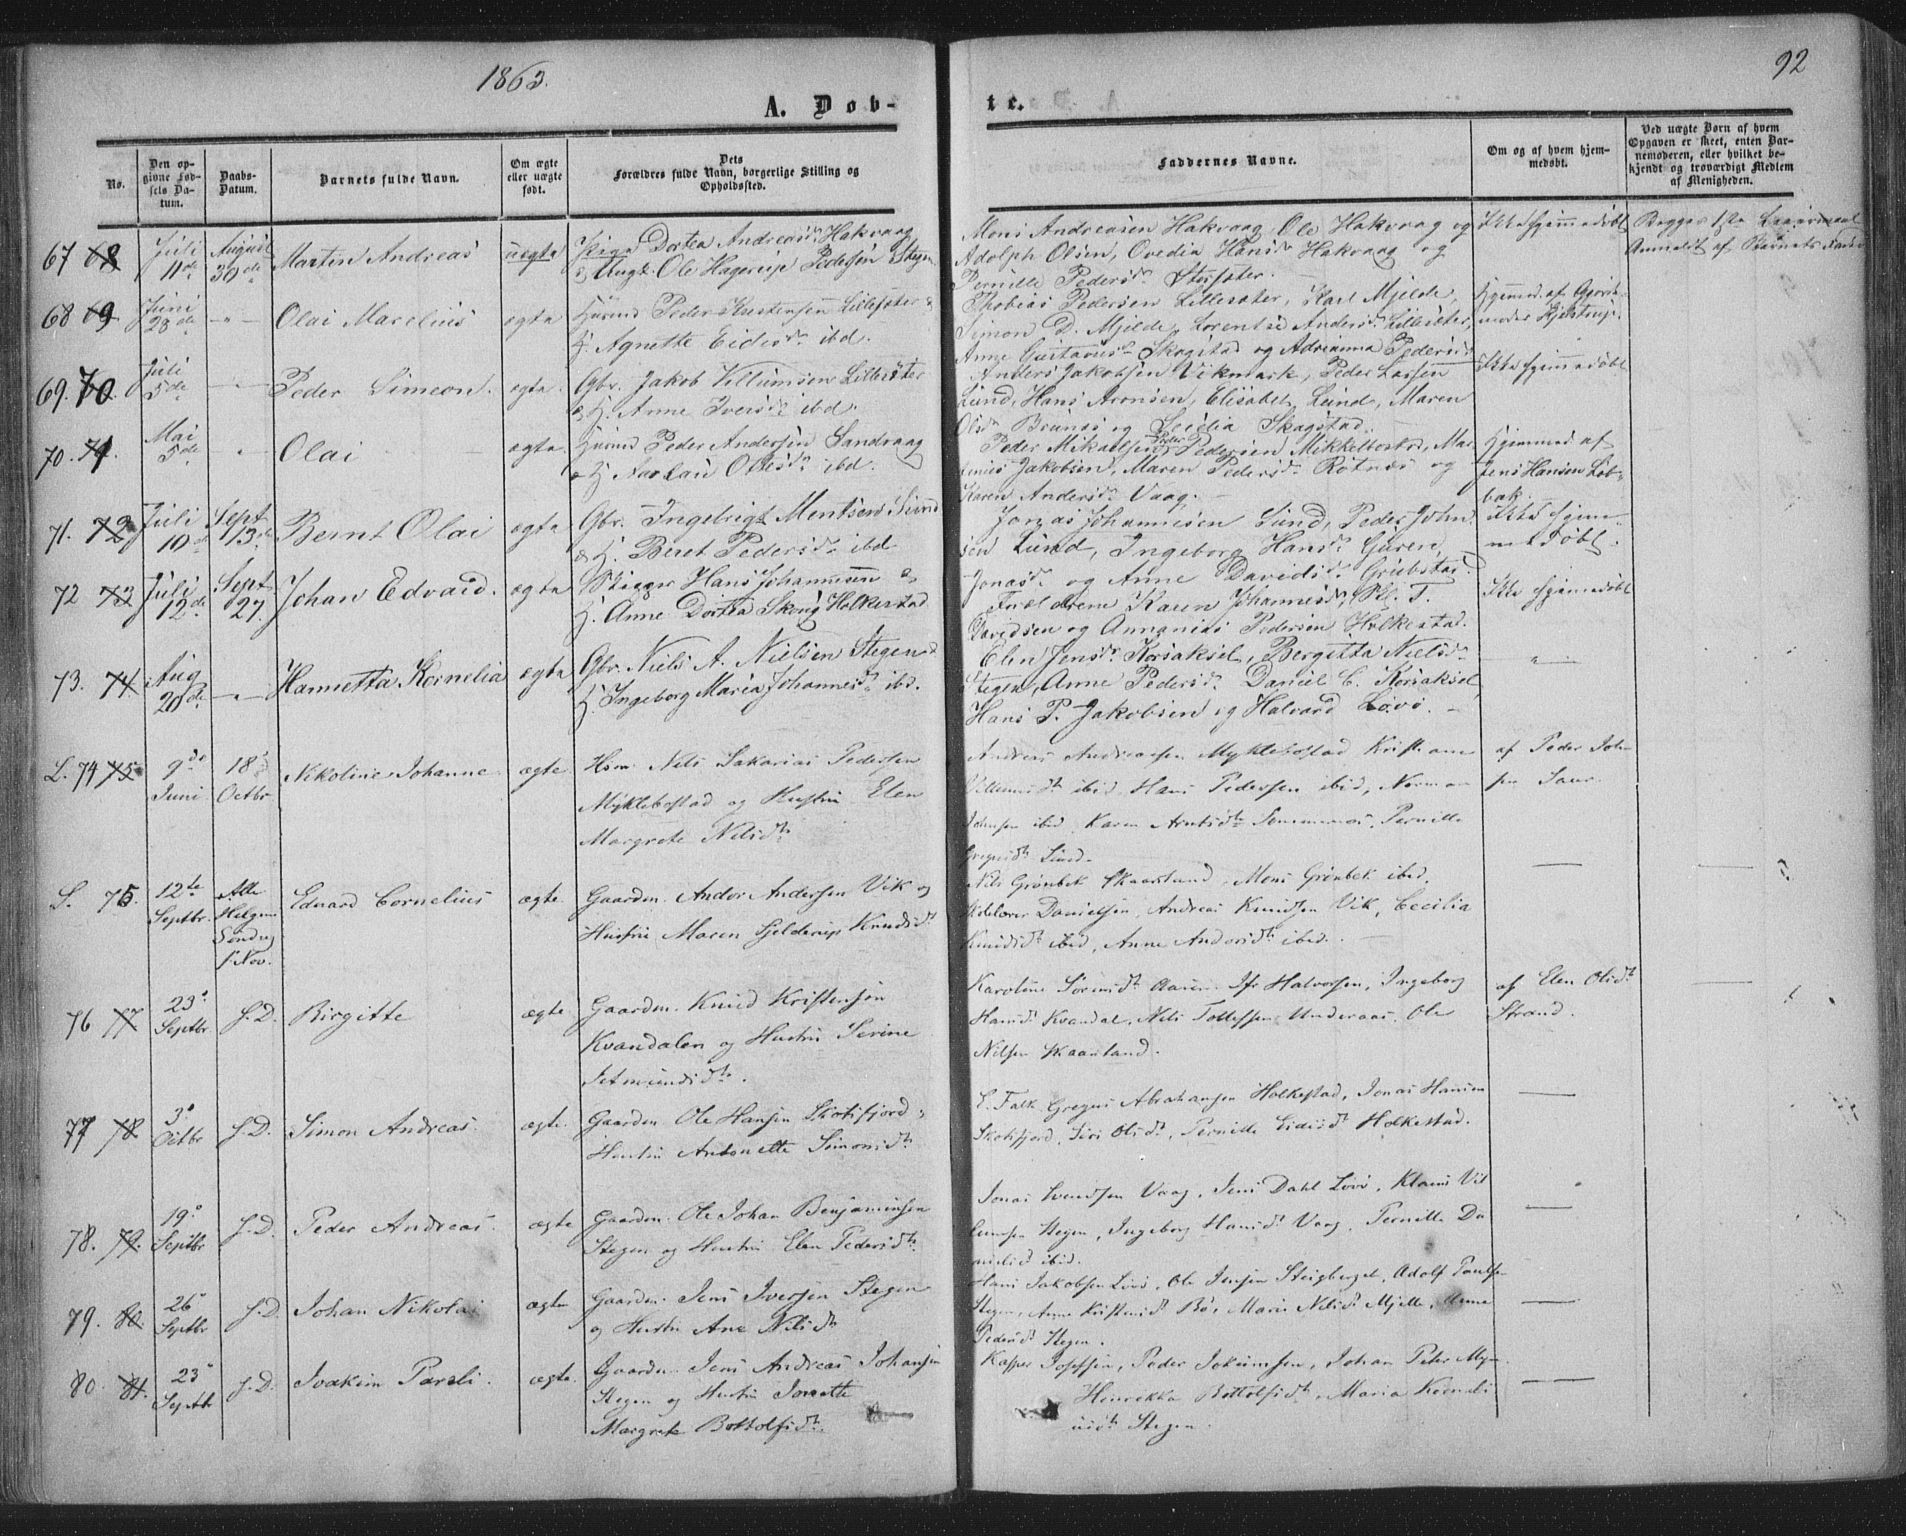 1863.
92
A. Døb-
te.
No.
Den op-
givne Fød-
sels Da-
tum.
Daabs-
Datum.
Barnets fulde Navn.
Om ægte
eller uægte
født.
Dets
Forældres fulde Navn, borgerlige Stilling og
Opholdssted.
Faddernes Navne.
Om og af hvem hjem-
medøbt.
Ved uægte Børn af hvem
Opgaven er skeet, enten Bar-
nemoderen, eller hvilket be-
kjendt og troværdigt Medlem
af Menigheden.
67 68 Juli 11te August 30de Martin Andreas uægta Pige Dortea Andreasd. Hakvaag
& Ungk. Ole Hagerup Pedersen Stegen
Mons Andreasen Hakvaag, Ole Hakvaag og
Adolph Olsen, Ovedia Hansd. Hakvaag og
Pernille Pedersd. Storsæter.
Ikke hjemmedøbt
Begges 1ste
Anmeldt af Barnets Fader
68 69 Juni 28de -"- Olai Marelius ægta Huusm. Peder Kristensen Lillesæter &
H. Agnette Eidisd. ibd.
Thobias Pedersen Lillesæter, Karl Mjelde,
Simon D. Mjelde, Lorentse Andersd. Lillesæter,
Anne Gustavusd. Skogstad og Adrianna Pedersd.
Hjemmed. af Gjord-
moder Kjelstrup.
69. 70. Juli 5de -"- Peder Simeon. ægta. Gbr. Jakob Villumsen Lillesæter
& H. Anne Iversd. ibd.
Anders Jakobsen Vikmark, Peder Lassen
Lund, Hans Aronsen, Elisabet Lund, Maren
Olsd. Brunsø og Seselia Skogstad.
Ikke hjemmedøbt
70. 71. Mai 5de " Olai ægta Huusm. Peder Andersen Sandvaag
& H. Olsd. ibd.
Peder Mikaelsen, Peder Pedersen Mikkelbostad, Mar-
Jakobsen, Maren Pedersd. Rotnes og
Karen Andersd. Vaag.
Hjemmed. af
Jens Hansen Løb-
bak.
71. 72 Juli 10de Sept 13de Bernt Olai ægta Gbr. Ingebrigt Mentsen Lund
& H. Beret Pedersd. ibd.
Jonas Johannesen Lund, Peder John-
sen Lund, Ingeborg Hansd.
Jonasd. og Anne Davidsd.
Ikke hjem-
medøbt.
72 73 Juli 12de Sept 27. Johan Edvard. ægta Hans Johannesen &
H. Anne Dortea Skong Holkestad
Forældrene Karen Johannesd.,
Davidsen og Annanias Pedersen Holkestad.
Ikke hjemmedøbt
73. 74 Aug 20de -"- Hannetta Kornelia ægta Gbr. Niels A. Nielsen Stegen &
H. Ingeborg Maria Johannesd. ibd.
Elen Jensd. Korsaksel, Bergetta Nielsd.
Stegen, Anne Pedersd. Daniel C. Korsaksel
Hans P. Jakobsen og Halvard Løvø.
-"-
L. 74 75 9de Juni 18 Octbr Nikoline Johanne ægte Hsm. Nils Sakarias Pedersen
Myklebostad og Hustru Elen
Margrete Nilsdt.
Andreas Andreassen Myklebostad Kristiane
Villumsdt. ibid, Hans Pedersen ibid, Norman
Johnsen ibid, Karen Arntsdt., Pernille
Gregusdt. Lund.
af Peder Joh-
sen
S. 75. 12te Septbr. Alle Helgens Søndag 1 Nov. Edvard Cornelius ægte. Gaardm. Andor Andersen Vik og
Hustru Maren Hjelderup Knudsdt.
Nils Grønbek Skaarland, Mons Grønbek ibid.
Skolelærer Danielsen, Andreas Knudsen Vik, Cecilia
Knudsdt. ibid, Anne Andorsdt. ibid.
76 77 23 Septbr S.D. Birgitte ægte Gaardm. Knud Kristensen
Kvandalen og Hustru Serine
Setmundsdt.
Karoline Sørensdt. Halvorsen, Ingeborg
Hansdt. Kvandal, Nils Tollefsen Underaas, Ole
Nilsen Skaarland.
af Elen Olsdt.
Strand.
77 78 3 Octbr S.D. Simon Andreas. ægte. Gaardm. Ole Hansen Skotsfjord &
Hustru Antonette Simonsdt.
E. Falk Gregus Abrahamsen Holkestad, Jonas Hansen
Skotsfjord, Siri Olsdt., Pernille Eidisdt. Holkestad.
78. 79. 19 Septbr S.D. Peder Andreas. ægte Gaardm. Ole Johan Benjaminsen
Stegen og Hustru Elen Pedersdt.
Jonas Svendsen Vaag, Jens Dahl Løvø, Klaus Vil-
lumsen Stegen, Ingeborg Hansdt. Vaag, Pernille Da-
nielsdt ibid.
79. 80. 26 Septbr S.D. Johan Nikolai ægte Gaardm. Jens Iversen Stegen
og Hustru Ane Nilsdt.
Hans Jakobsen Løvø, Ole Jensen Steigberget, Adolf Paulsen
Stegen, Anne Kristensdt. Bø, Maria Nilsdt. Mjelle, Anne
Pedersdt. Stegen.
80. 81. 23 Septbr S.D. Joakim Pareli. ægte. Gaardm. Jens Andreas Johansen
Stegen og Hustru Jonette
Margrete Bottolfsdt.
Kasper Josefsen, Peder Jokumsen, Johan Peter
Henrikka Bottolfsdt., Maria Korneli-
usdt. Stegen.